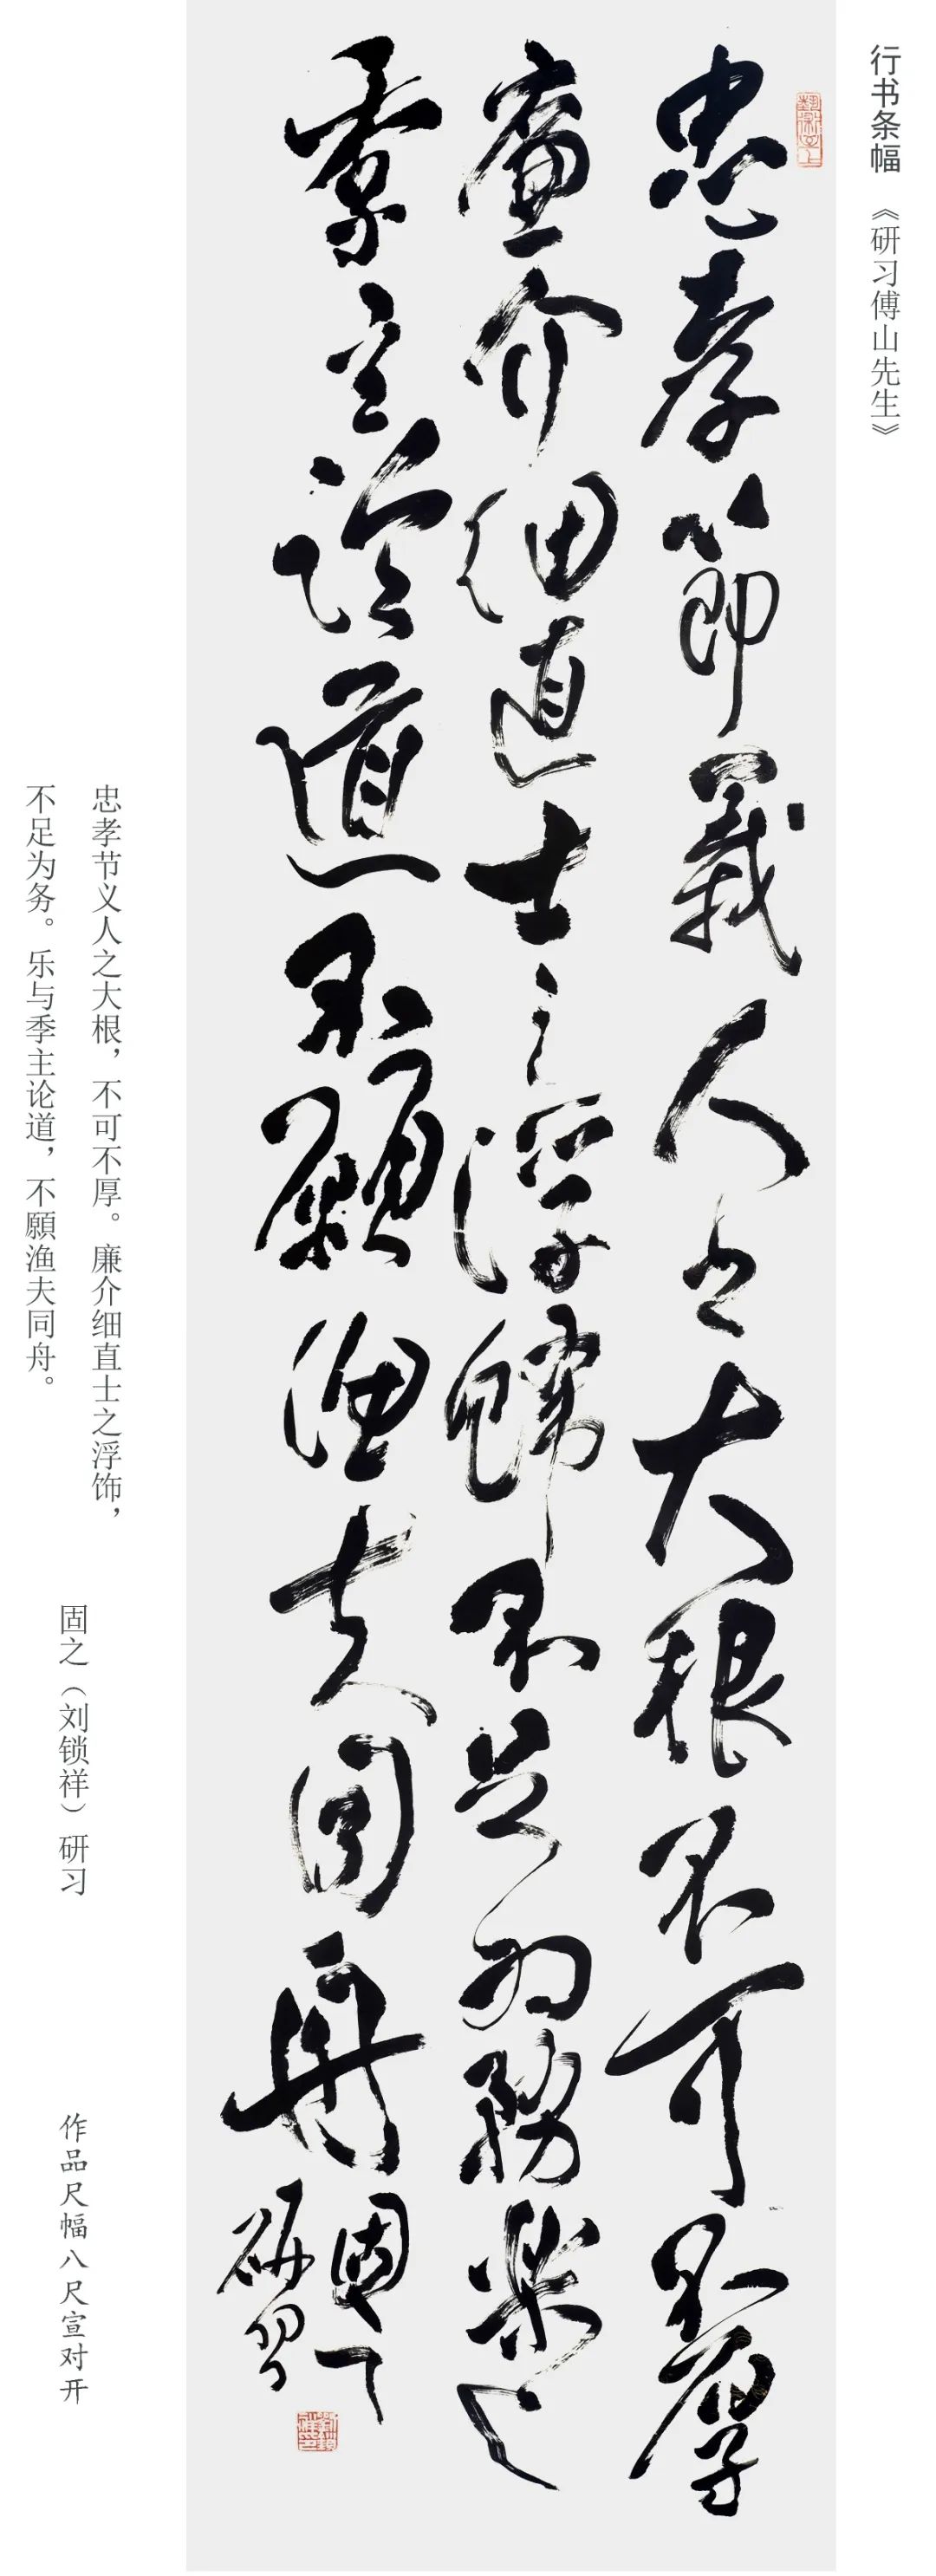 行书条幅 《研习傅山先生》
忠孝節義人之大根不可不厚
廉介细直士之浮饰不足为務楽与
季主论道不願渔夫同舟
固之
研習
忠孝节义人之大根，不可不厚。廉介细直士之浮饰，
不足为务。乐与季主论道，不願渔夫同舟。
固之（刘锁祥）研习
作品尺幅八尺宣对开